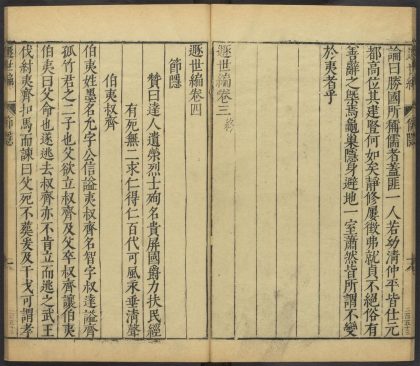 論曰勝國所稱儒者蓋匪一人若幼清仲平皆仕元
都高位其建豎何如矣靜修屢徵弗就貞不絕俗有
善辭之榮焉龜巢隱身避地一室蕭然皆所謂不變
於夷者乎
遯世編卷三終
遯世編卷四
節隱
贊曰達人遺榮烈士殉名貴屏國爵力扶民經
有死無二求仁得仁百代可風永垂清聲
伯夷叔齊
伯夷姓墨名允字公信謚夷叔齊名智字叔達謚齊
孤竹君之二子也父欲立叔齊及父卒叔齊讓伯夷
伯夷曰父命也遂逃去叔齊亦不肯立而逃之武王
伐紂夷齊扣馬而諫曰父死不葬爰及干戈可謂孝